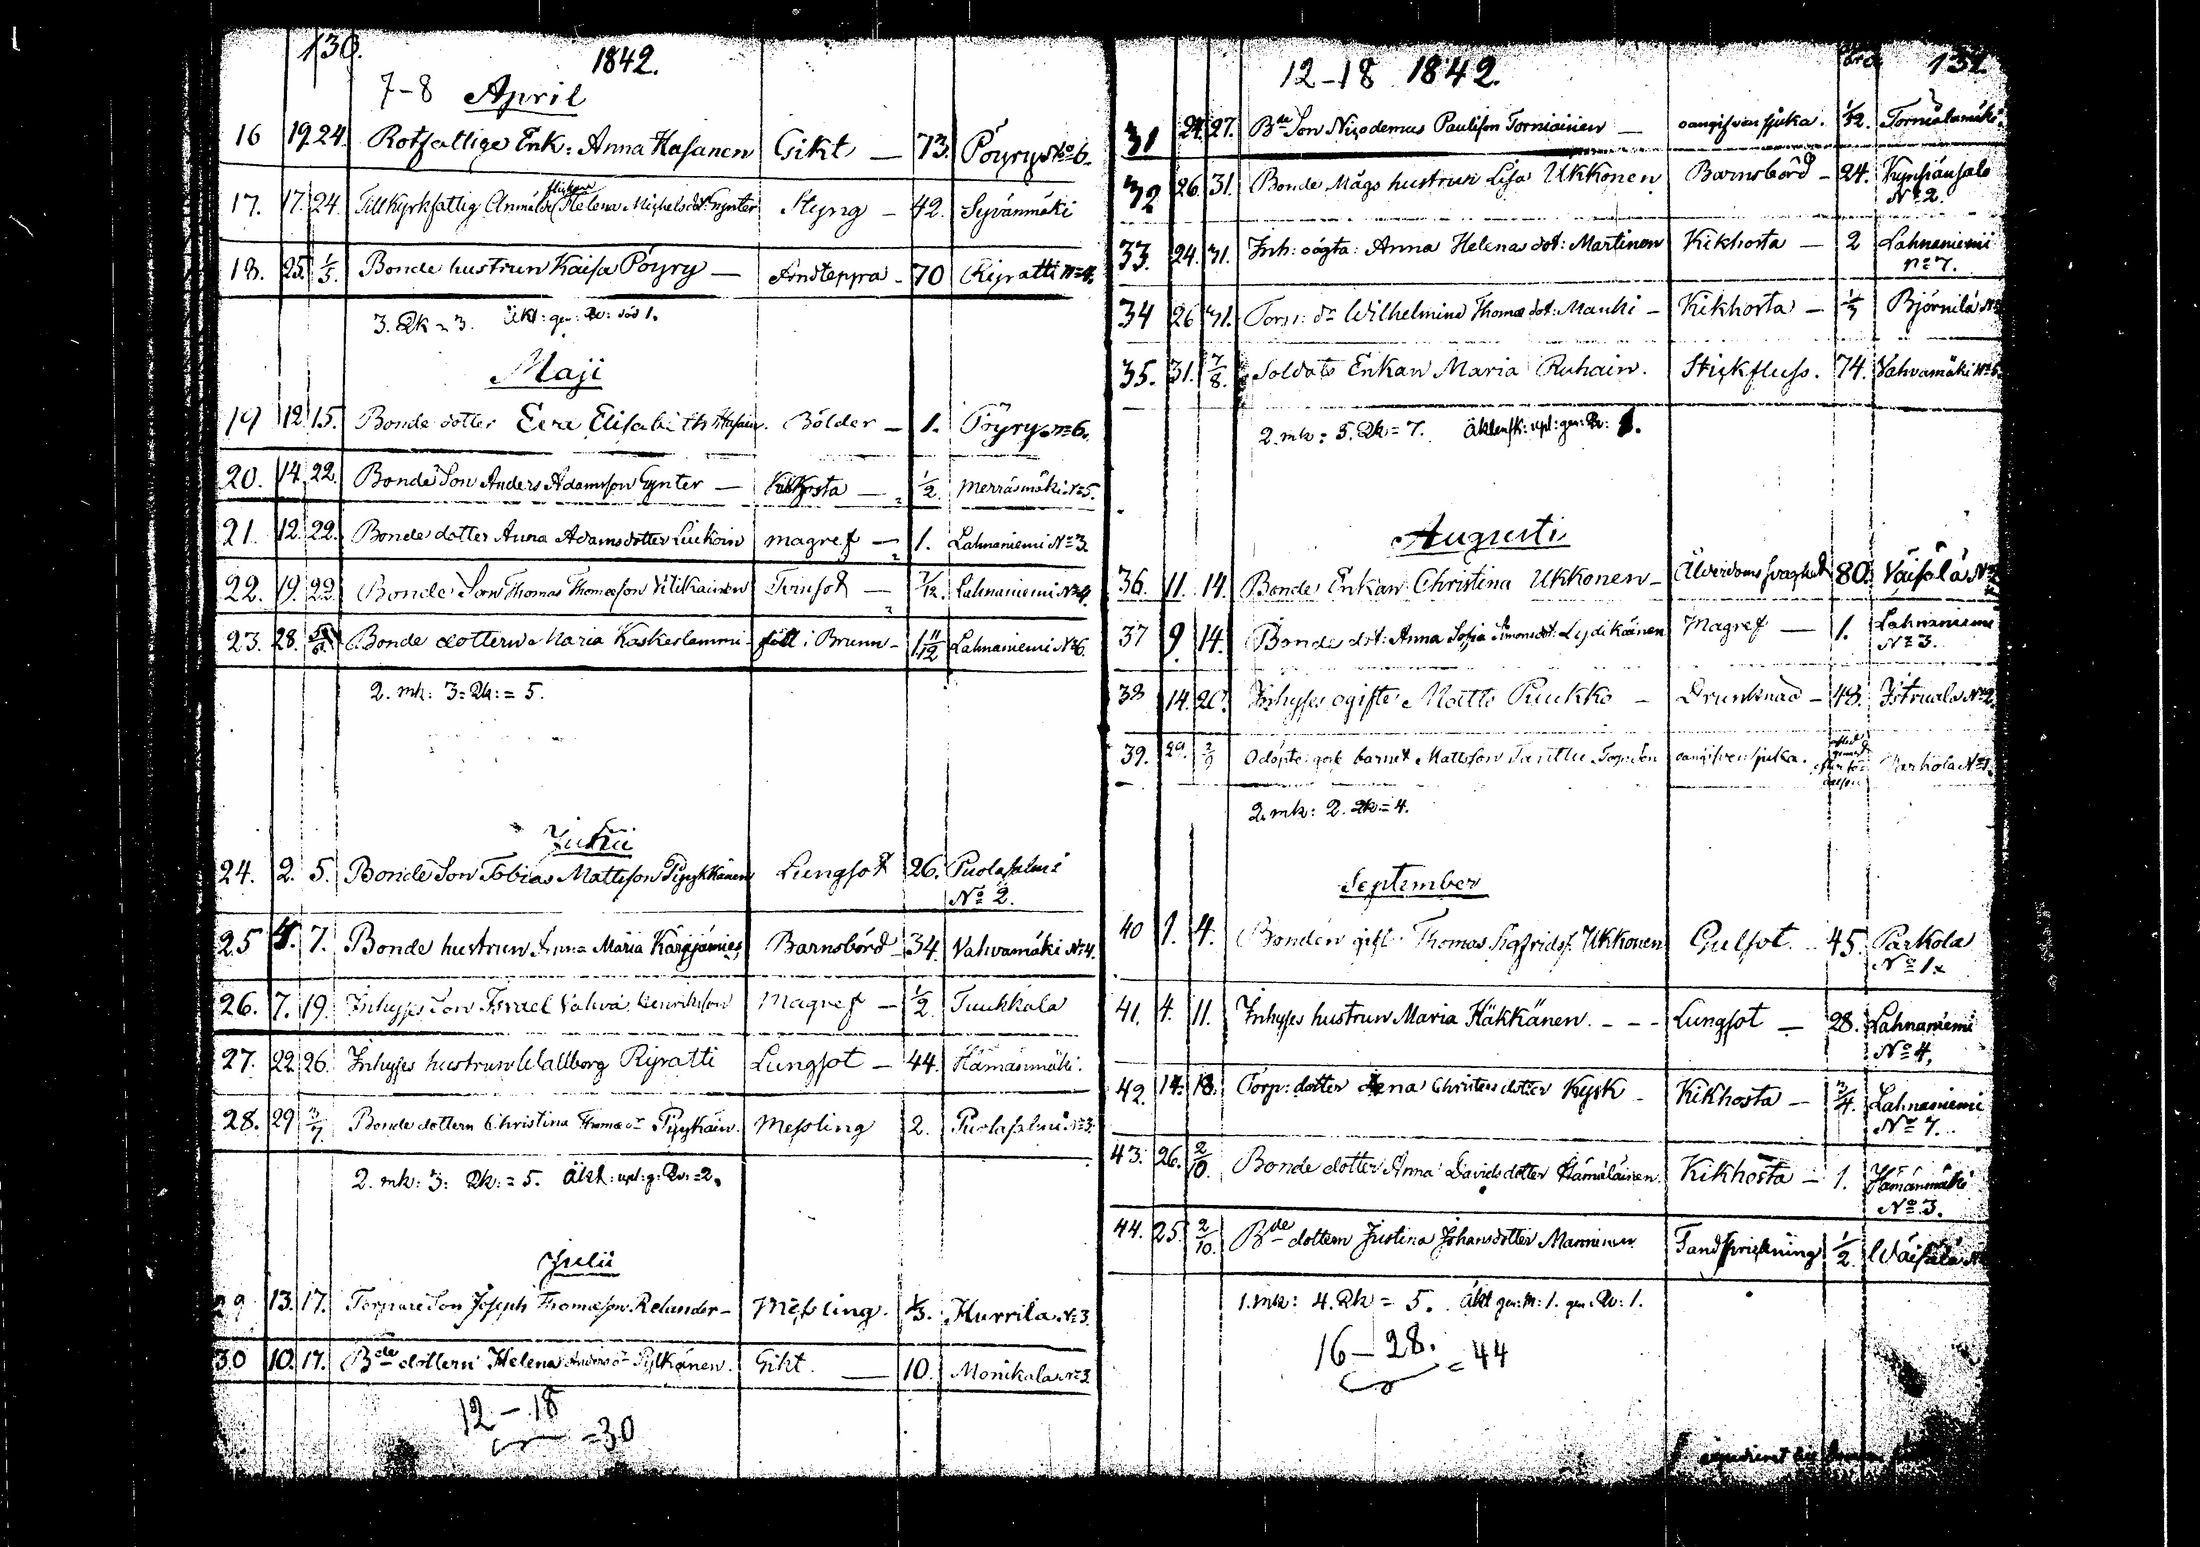 130.
1842.
7-8 April
16 19. 24. Rotfattige Enk: Anna Hasanen Gikt — 73. Pöyry No 6.
17. 17. 24. Helena Michelsdotr Gynter Styng — 42. Syvänmäki
18. 25. 1/5. Bonde hustrun Kaisa Pöyry — Andteppa - 70 Ripatti No 4.
3. Qk = 3.
Maji
19 12. 15. Bonde dotter Eva Elisabeth Bölder — 1. Pöyry No 6.
20. 14. 22. Bonde Son Anders Adamsson Gynter — Kikhosta — 1/2. Merrasmäki No 5.
21. 12. 22. Bonde dotter Anna Adamsdotter magref — 1. Lahnaniemi No 3.
22. 19. 22. Bonde Son Thomas Thomasson /12. Lahnaniemi No 4.
23. 28. Bonde dottern Maria Kaskeslammi föll i Brunn - 1 11/12 Lahnaniemi No 6.
2. mk: 3. Qk: = 5.
Junii
24. 2. 5. Bonde Son Tobias Mattsson Pyykkänen Lungsot 26. Puolasalmi
No 2.
25 4. 7. Bonde hustrun Anna Maria Karjamies Barnsbörd - 34. Vahvamäki No 4.
26. 7. 19. Inhyses Son Israel Vahva Henriksson Magref — 1/2. Tuukkala
27. 22. 26. Inhyses hustrun Wallborg Ripatti Lungsot — 44. Hämänmäki.
28. 29 3/7 Bonde dottern Christina Thomasdr Pyykäin. Messling 2. Puolasalmi No 3.
2. mk: 3: Qk: = 5. Äkt: upl: g: Qv: = 2.
Julii
29 13. 17. Torpare Son Joseph Thomasson Relander — Messling. 1/3. Hurrila No 3.
30 10. 17. Bde dottern Helena Andersdr Pylkänen. Gikt — 10. Monikala No 3
12 - 18
= 30
12-18 1842.
131
31 24. 27. Bde Son Nicodemus Paulsson Torniainen — oangifven sjuka. 1/12. Torniälamäki
32 26. 31. Bonde Mågs hustrun Lisa Ukkonen Barnsbörd - 24. Kynsiänsalo
No 2.
33. 24. 31. Inh: oägta: Anna Helena dot: Martinen Kikhosta — 2 Lahnaniemi
No 7.
34 26 31. Torp: dr Wilhelmina Thomae dot: Manki — Kikhosta — Björnilä No
35. 31. 7/8. Soldats Enkan Maria Ruhain. Stickfluss. 74. Vahvamäki No 5
2. mk: 5. Qk = 7.
Augusti
36. 11. 14. Bonde Enkan Christina Ukkonen — Ålderdoms svaghet 80. Väisälä No 2
37 9. 14. Bonde dot: Anna Sofia Simonsdot: Lydikäinen Magref — 1. Lahnaniemi
No 3.
38 14. 20. Inhyses ogifte Matts Puukko — Drunknad — 48. Istruala No 2
39. 29. 2/9 Odöpte goss barnet Mattsson oangifven sjuka. Parkola No 1.
2. mk: 2. Qk = 4.
September
40 1. 4. Bonden gift: Thomas Sigfridsf. Ukkonen Gulsot. 45. Parkola
No 1.
41. 4. 11. Inhyses hustrun Maria Häkkänen. - - - Lungsot — 28. Lahnaniemi
No 4.
42. 14. 18. Torp: dotter Lena Christersdotter Kysk - Kikhosta — 3/4. Lahnaniemi
No 7.
43. 26. 2/10. Bonde dotter Anna Davidsdotter Hämäläinen. Kikhosta — 1. Hämänmäki
No 3.
44. 25. 2/10. Bde dottern Justina Johansdotter Manninen Tandspricking 1/2. Wäisälä No
1. mk: 4. Qk = 5. Äkt gen: M: 1. gen: Qv: 1.
16 - 28.
= 44